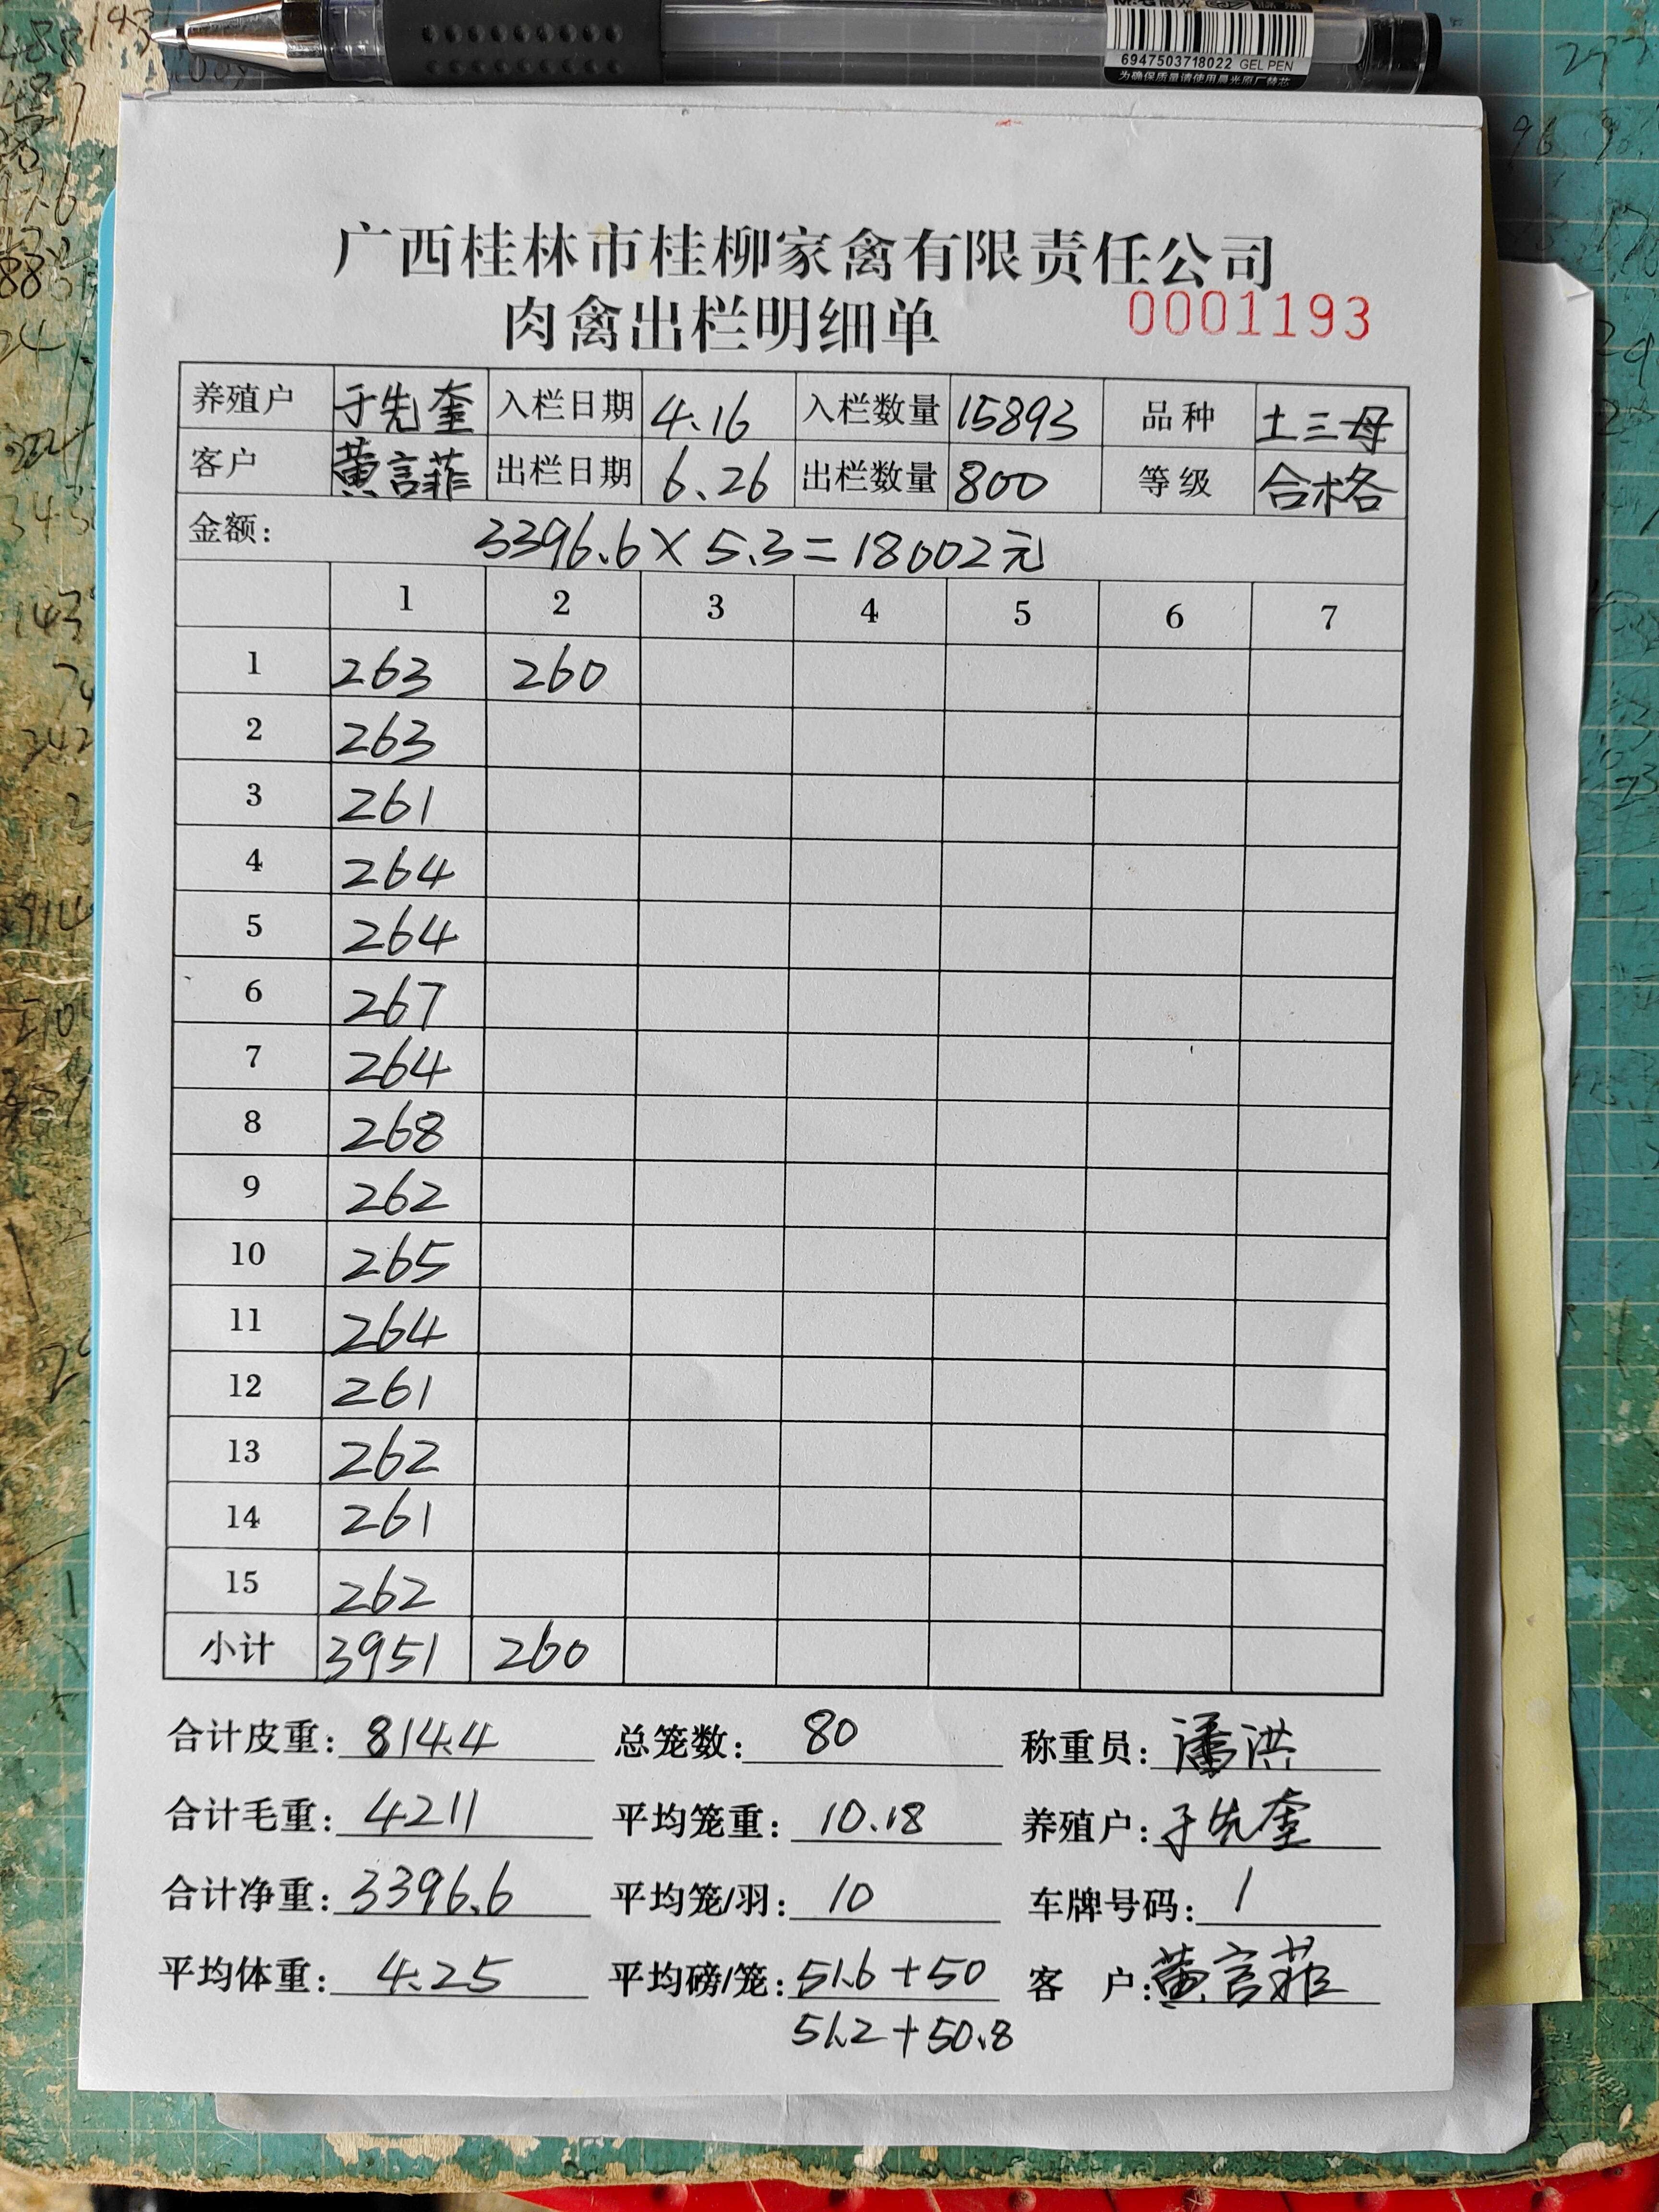 6947503718022 GEL PEN
为确保质量请使用晨光原厂替芯
广西桂林市桂柳家禽有限责任公司
肉禽出栏明细单 0001193
养殖户 于先奎 入栏日期 4.16 入栏数量 15893 品种 土三母
客户 黄言菲 出栏日期 6.26 出栏数量 800 等级 合格
金额: 3396.6×5.3=18002元
1 2 3 4 5 6 7
1 263 260
2 263
3 261
4 264
5 264
6 267
7 264
8 268
9 262
10 265
11 264
12 261
13 262
14 261
15 262
小计 3951 260
合计皮重: 814.4 总笼数: 80 称重员: 潘洪
合计毛重: 4211 平均笼重: 10.18 养殖户: 于先奎
合计净重: 3396.6 平均笼/羽: 10 车牌号码: 1
平均体重: 4.25 平均磅/笼: 51.6+50 客 户: 黄言菲
51.2+50.8